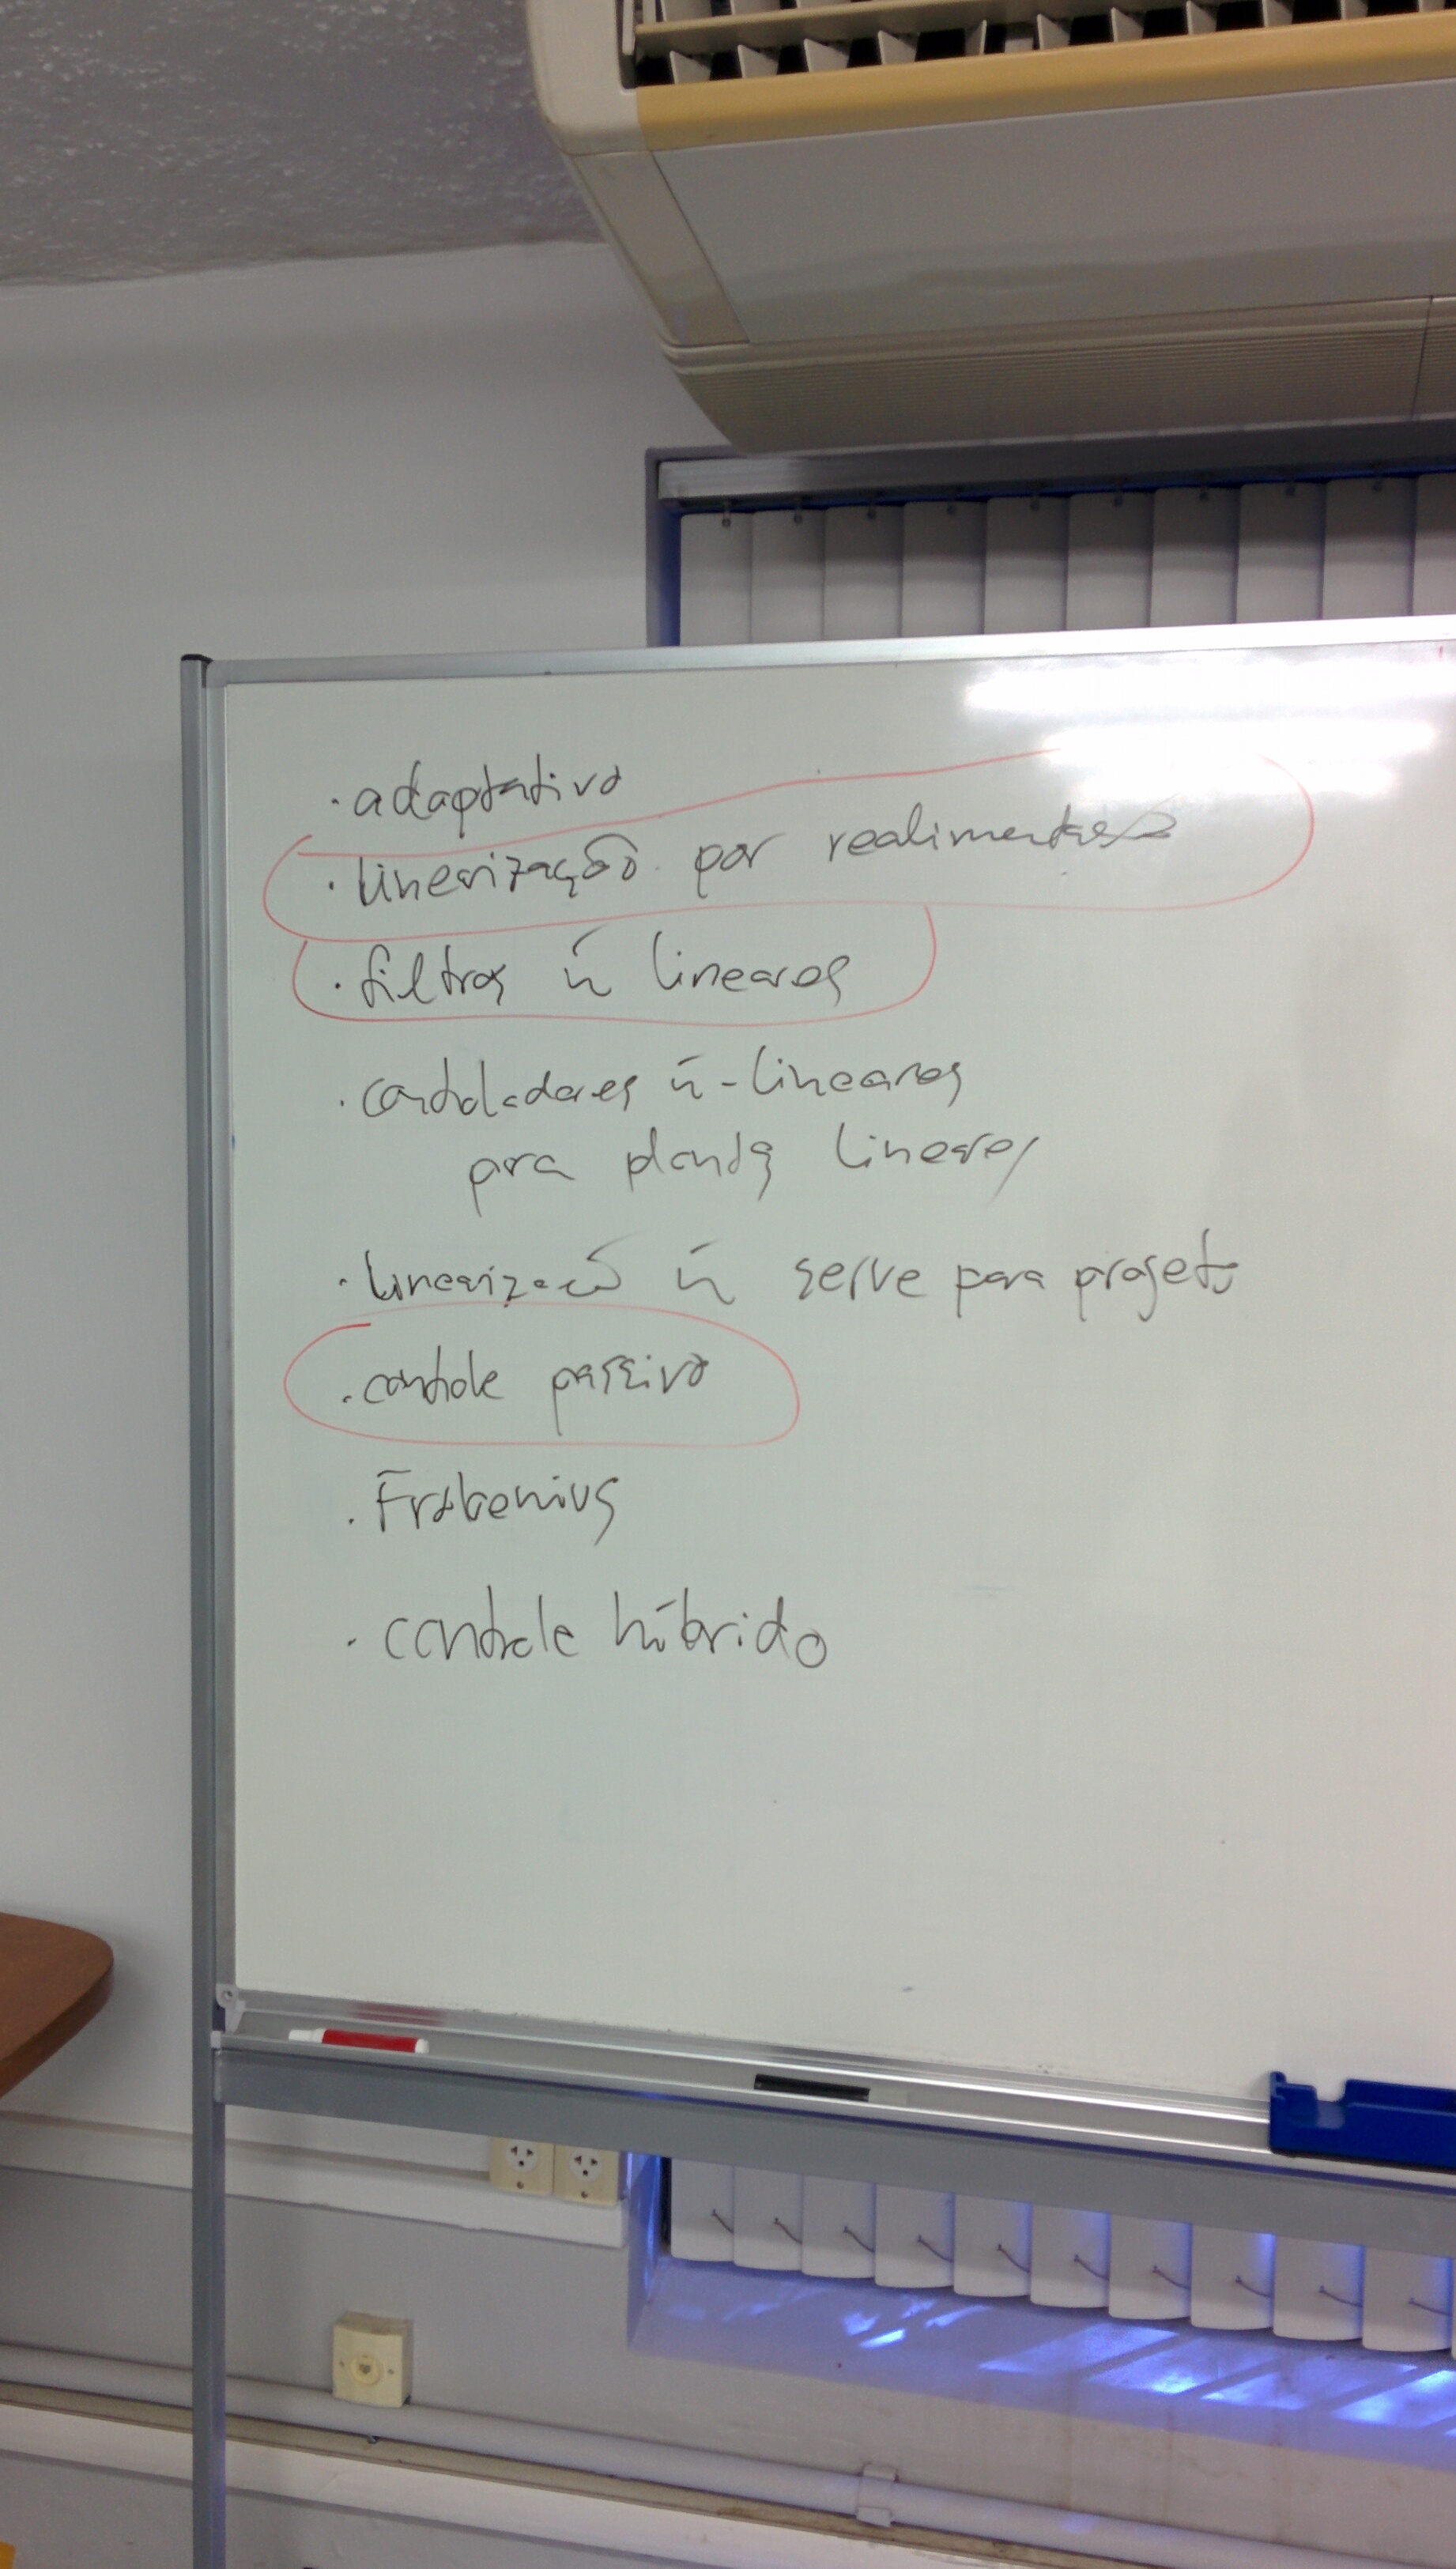 · adaptativo
· linearização por realimentação
· filtros ñ lineares
· controladores ñ-lineares
para plantas lineares
· linearização ñ serve para projeto
· controle passivo
· Frobenius
· controle híbrido